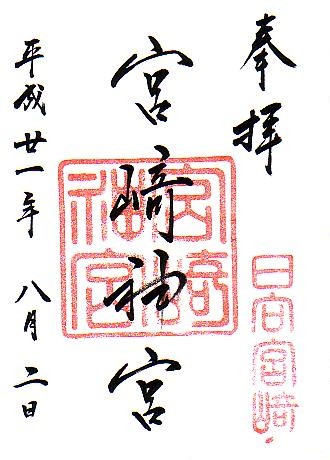 奉拝
日向宮崎
宮崎神宮
宮﨑神宮
平成廿一年 八月 二日